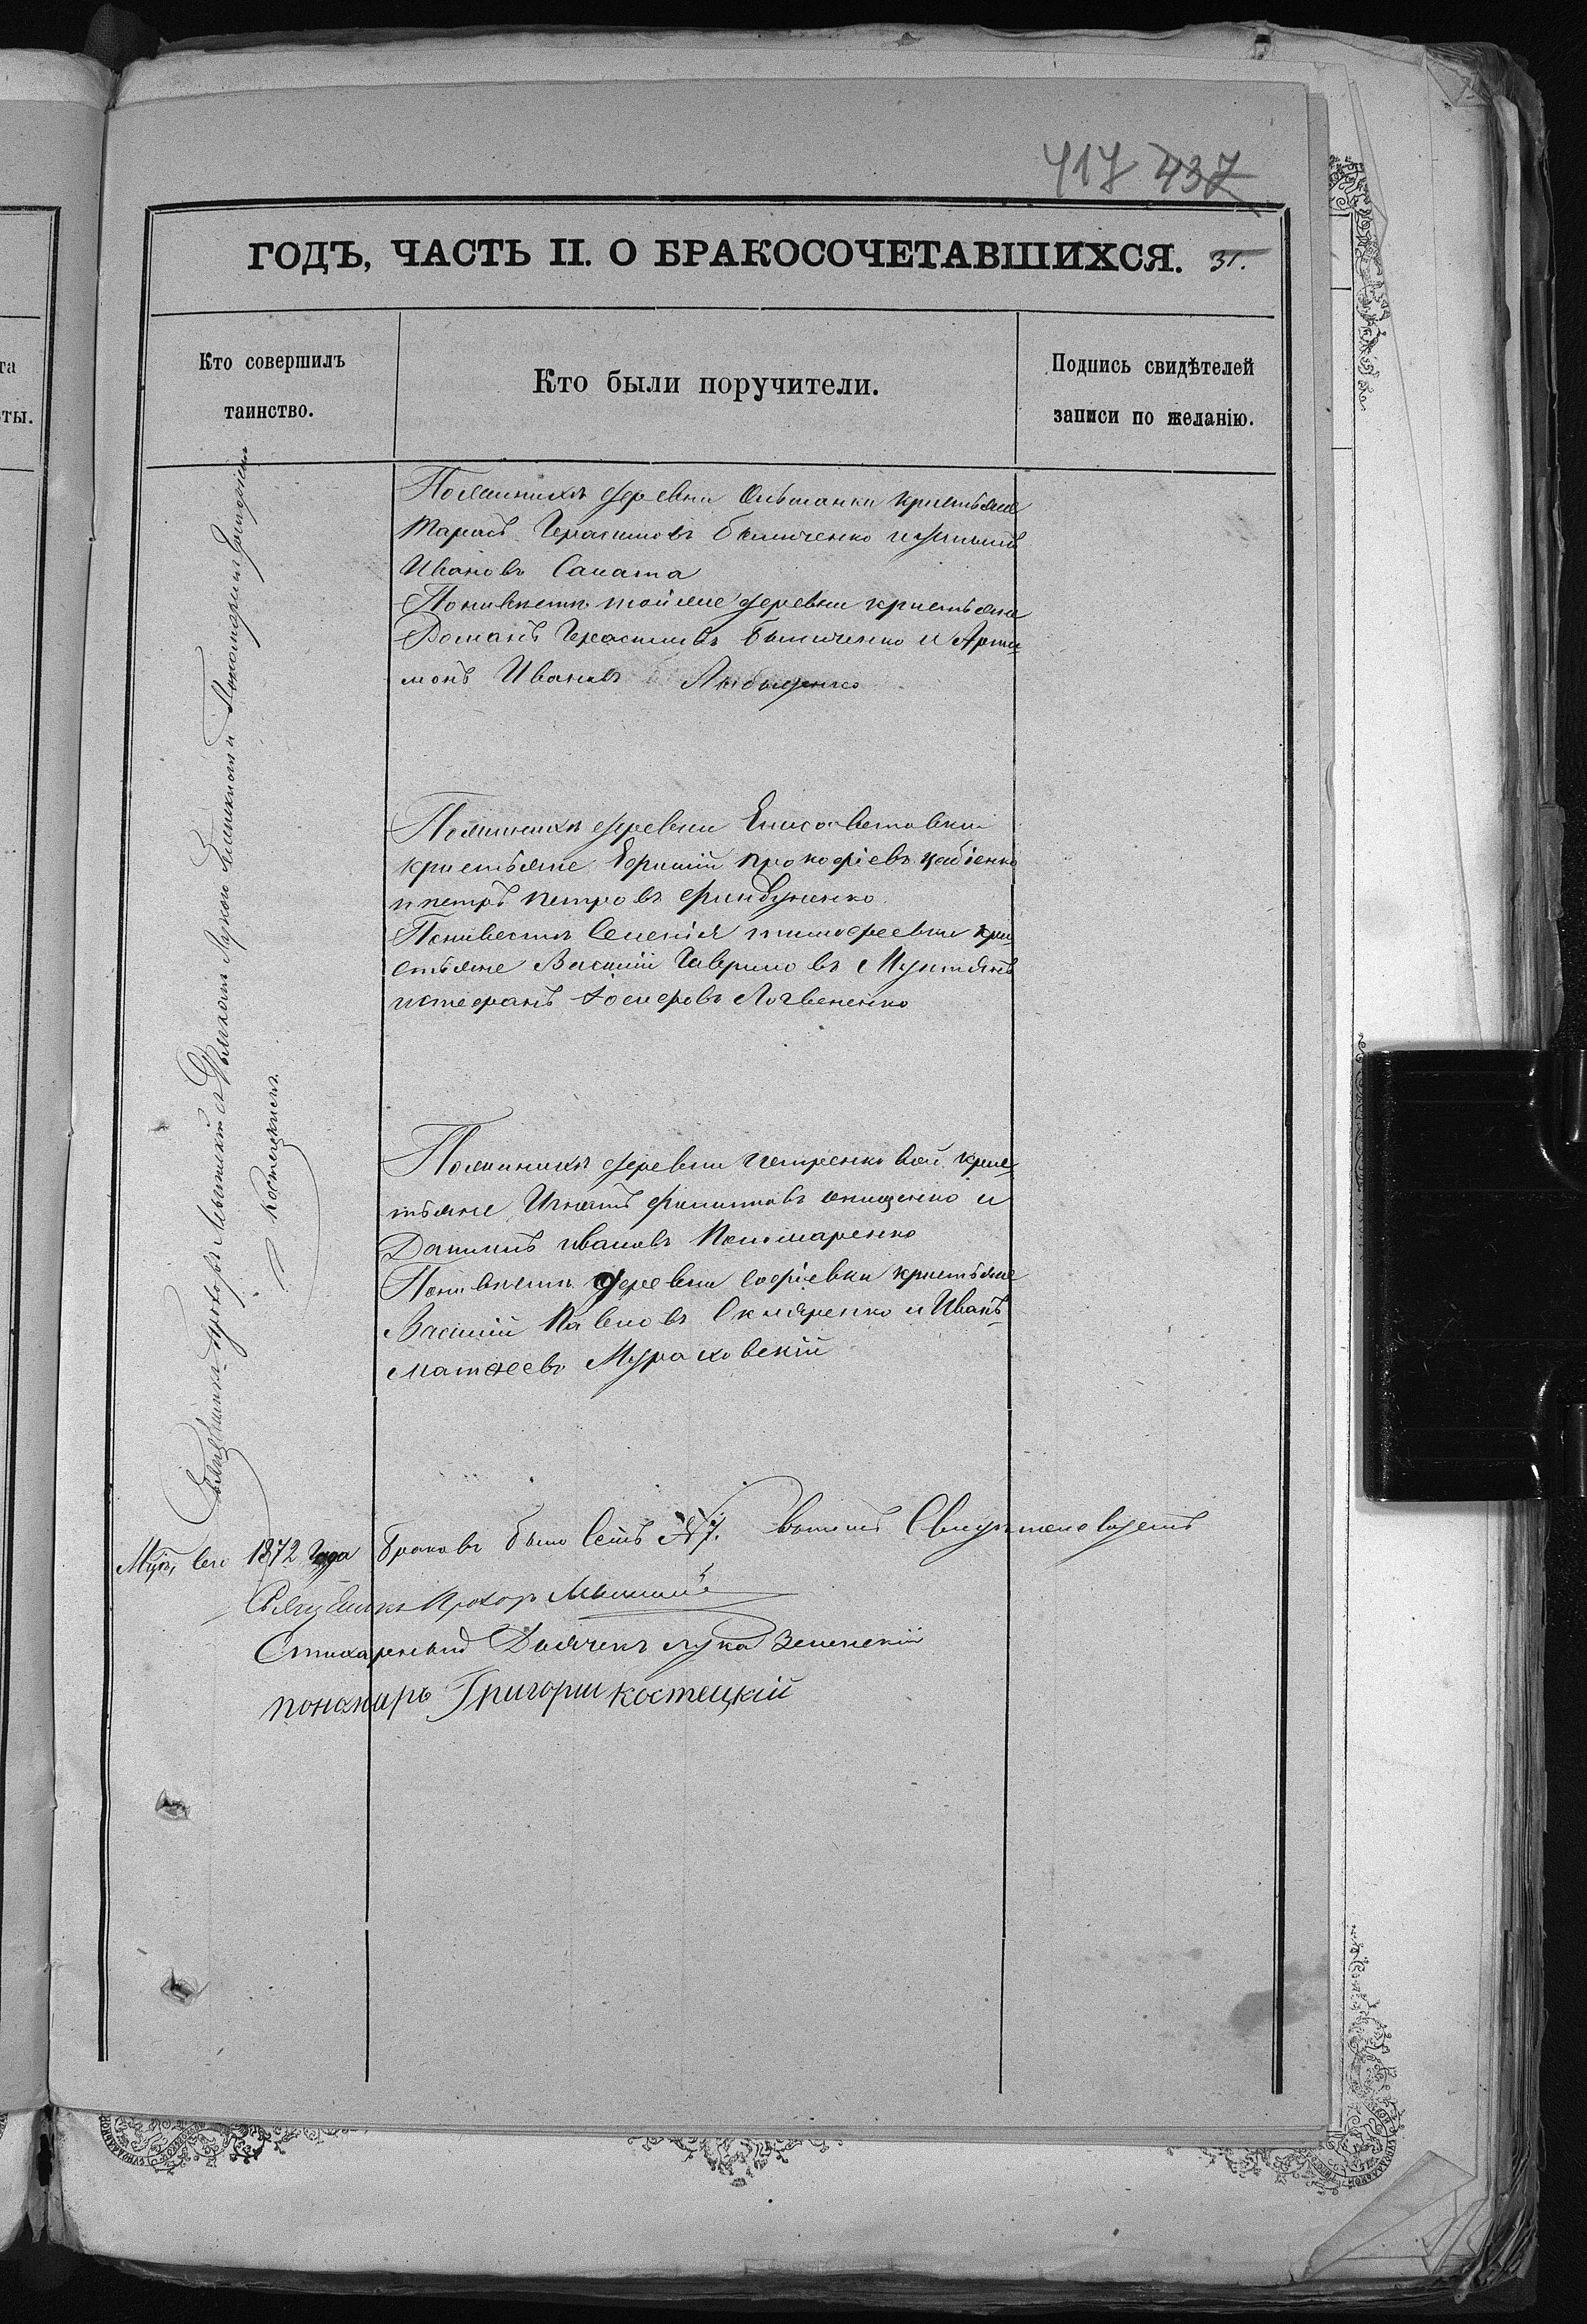 417 437
ГОДЪ, ЧАСТЬ II. О БРАКОСОЧЕТАВШИХСЯ. 31.
Кто совершилъ
таинство.
Кто были поручители.
Подпись свидѣтелей
записи по желанію.
Священникъ Прохоръ съ Дьячкомъ Лукою Зеленскимъ и Пономаремъ Григоріемъ
Костецкимъ.
Пожениху деревни Ольшанки крестьяне
Тарасъ Герасимовъ
Ивановъ Саната
Поневѣстѣ тойже деревни крестьяне
Романъ Герасимовъ и Арти
монъ Ивановъ
Пожениху деревни Елисаветовки
крестьяне Ефимій Прокофіевъ
и петръ Петровъ
Поневестѣ крe
стьяне Василій Гавриловъ
истефанъ Іосифовъ Логвененко
Пожениху деревни Петренковой крес
тьяне Игнатъ Филиповъ онищенко и
Даниилъ ивановъ Пономаренко
Поневѣсте деревни Софіевки крестьяне
Василій Павловъ Скляренко и Иванъ
матвеевъ Мураховскій
Итого, всего 1872 Года браковъ было Семь №7. вытомъ Свидѣтельствуемъ
Священникъ Прохоръ
Стихарный Дьячекъ лука Зеленскій
пономаръ Григории костецкій